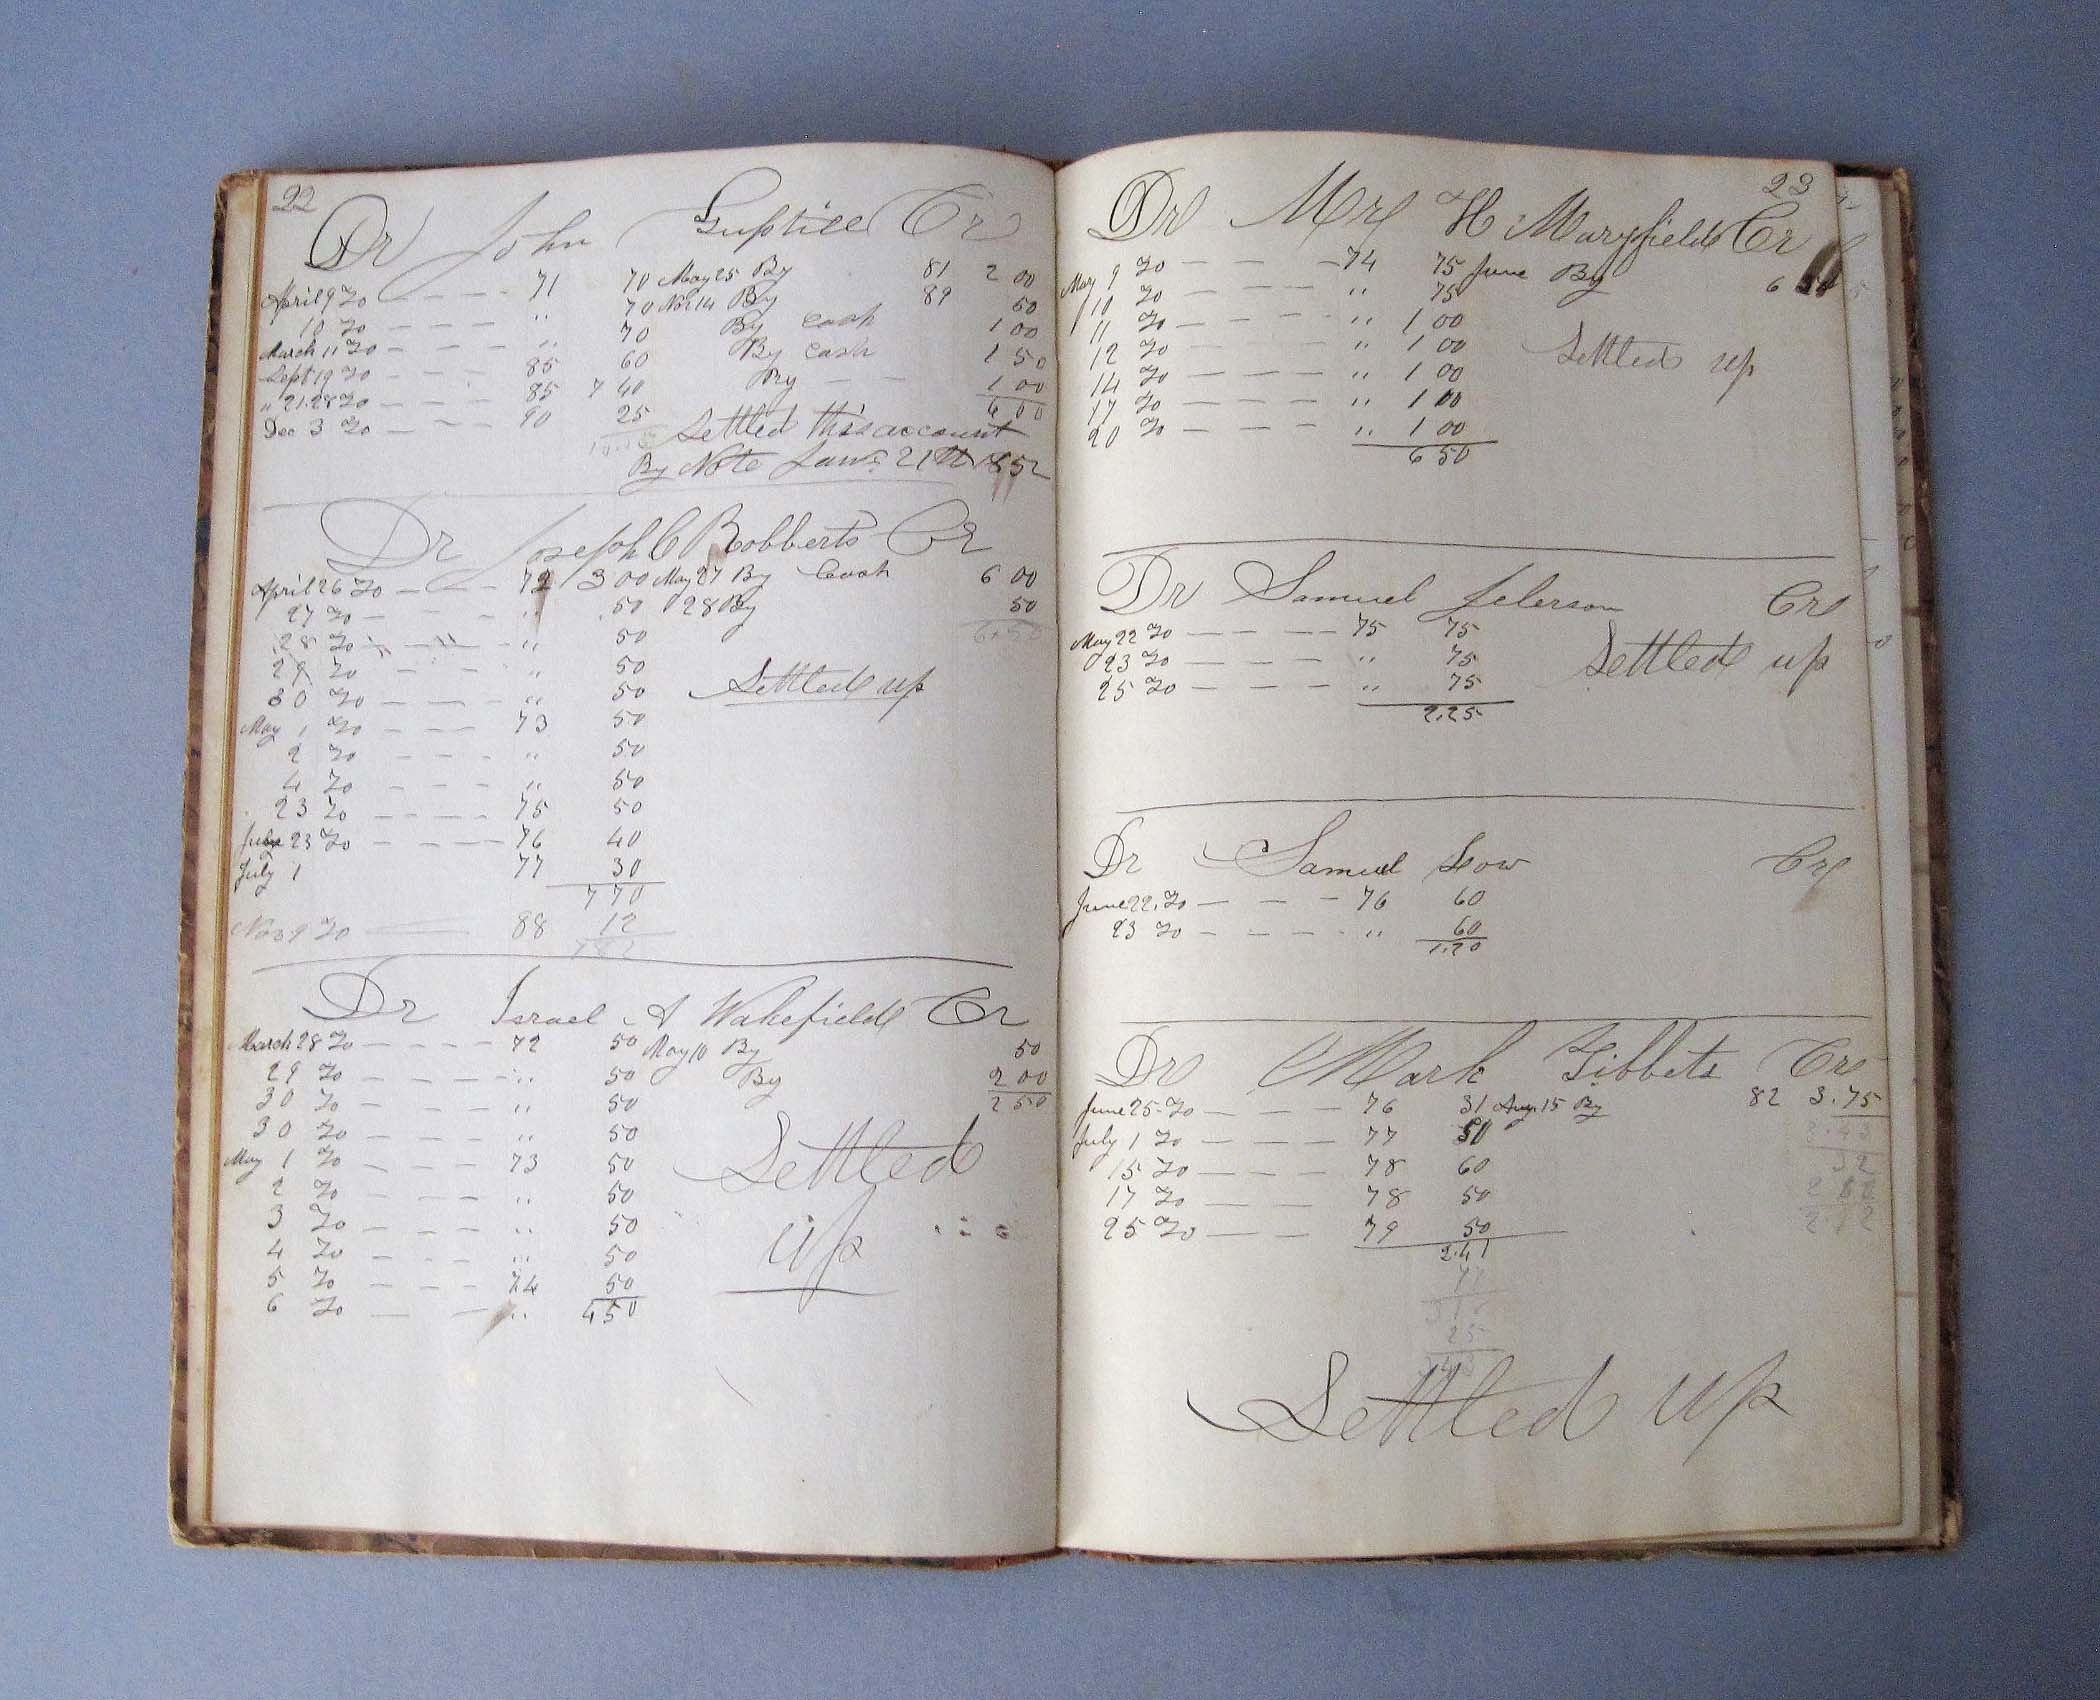 22
Dr John Guptill Cr
April 9 To — — — 71 70 May 25 By 81 2 00
10 To — — — " 70 Nov 14 By 89 50
March 11 To — — — " 70 By Cash 1 00
Sept 19 To — — — 85 60 By Cash 1 50
" 21.28 To — — — 85 7 40 By — — 1 00
Dec 3 To — — — 90 25 6 00
Settled this account
By Note Jan 21th 1852
Dr Joseph C Robberts Cr
April 26 To — — — 72 3 00 May 27 By Cash 6 00
27 To — — " 50 28 By 50
28 To — — " 50 6.50
29 To " 50
30 To — — — " 50 Settled up
May 1 To — — — 73 50
2 To — — — " 50
4 To — — — " 50
23 To — — — — 75 50
23 To — — — — 76 40
July 1 77 30
7 70
Nov 9 To 88 12
7 82
Dr Israel A Wakefield Cr
March 28 To — — — — 72 50 May 10 By 50
29 To — — — — " 50 By 2 00
30 To — — — — " 50 2 50
30 To — — — — " 50
May 1 To — — — 73 50 Settled
2 To — — — " 50
3 To — — — " 50 up
4 To — — — " 50
5 To — — — 74 50
6 To — — " 4 50
23
Dr Mrs H Maryfield Cr
May 9 To — — — 74 75 June By 6
10 To — — — " 75
11 To — — — " 1 00
12 To — — — " 1 00 Settled up
14 To — — — " 1 00
17 To — — — " 1 00
20 To — — — " 1 00
6 50
Dr Samuel Cr
May 22 To — — — — 75 75
23 To — — — — " 75 Settled up
25 To — — — — " 75
2.25
Dr Samuel Low Cr
June 22. To — — — 76 60
23 To — — — — " 60
1.20
Dr Mark Tibbets Cr
June 25 To — — — 76 31 Aug. 15 By 82 3.75
July 1 To — — — 77 50
15 To — — — 78 60
17 To — — — 78 50
25 To — — — 79 50
2.41
Settled up